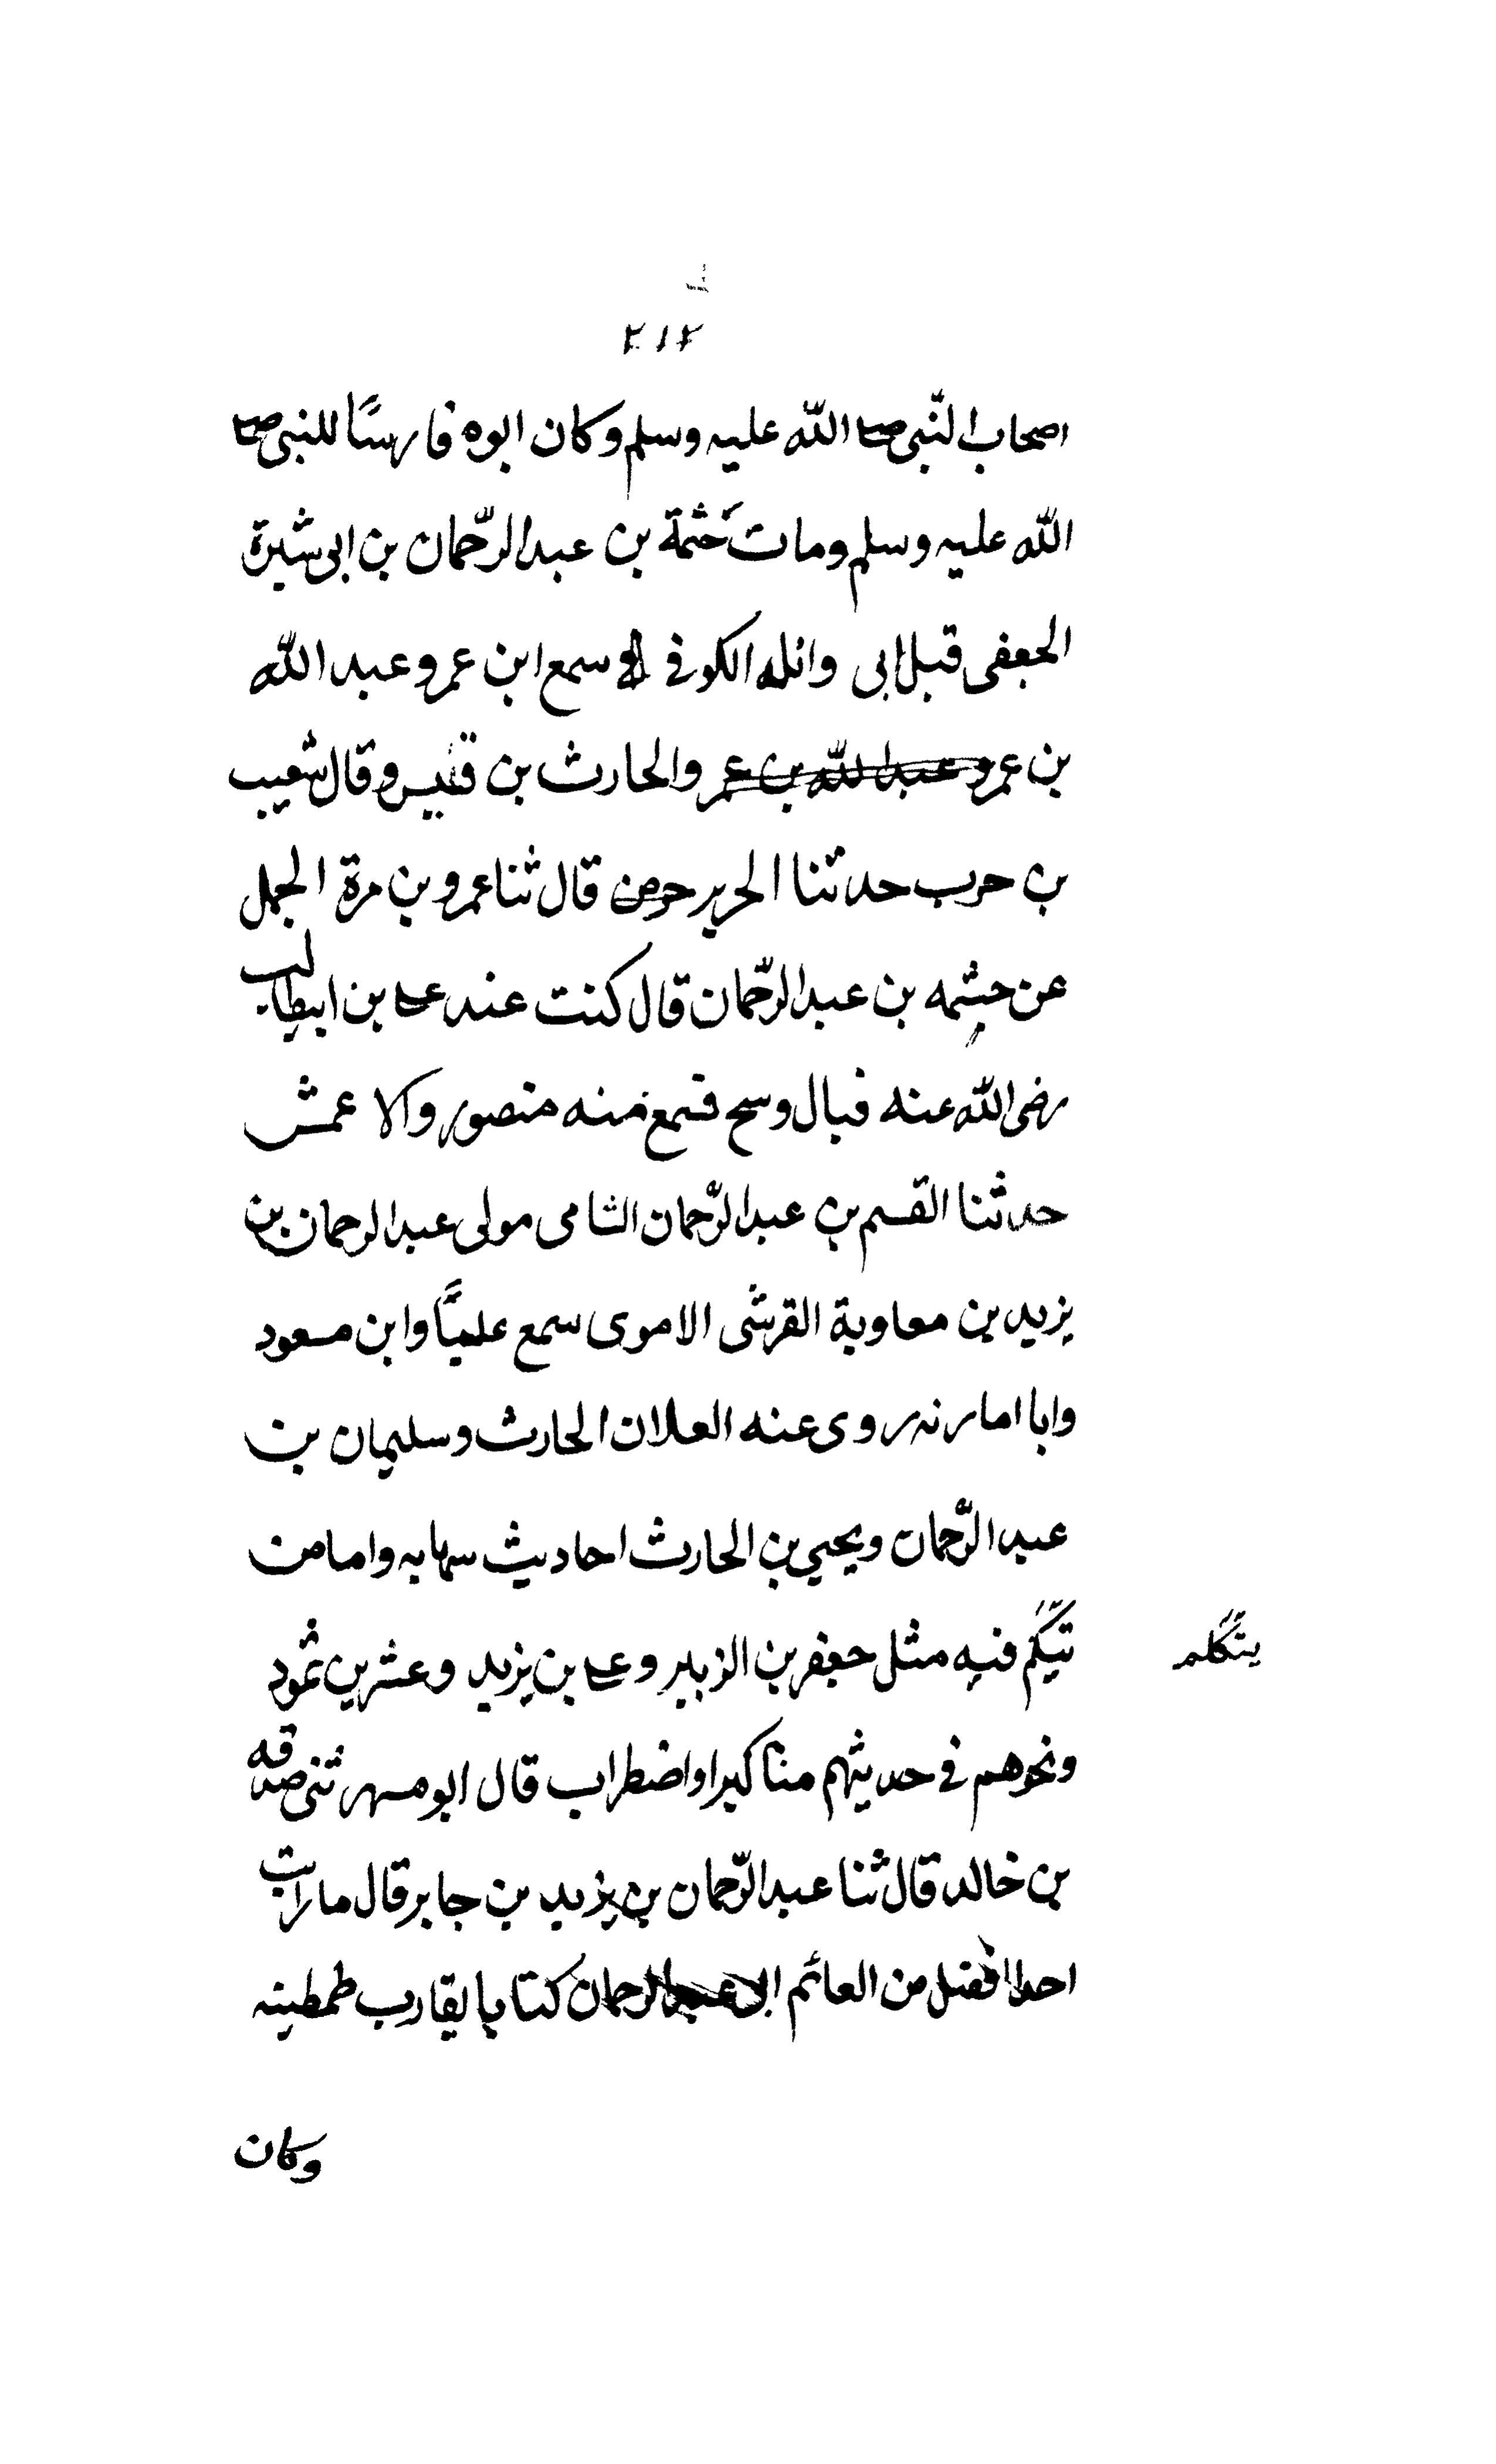 ٢١٢
اصحاب النّبى صلى اللّه عليه وسلم وكان ابوه فارسًا للنبى صلى
اللّه عليه وسلم ومات خثمة بن عبد الرّحمان بن ابى شبرة
الجعفى قبل ابى وائله الكوفى سمع ابن عمرو عبد اللّه
بن عمرو عبد اللّه بن عمر والحارث بن قيس وقال شعيب
بن حرب حدثنا قال ثنا عمرو بن مرة الجمل
عن خيثمه بن عبد الرّحمان قال كنت عند على بن ابيطالب
رضى اللّه عنه فبال ومسح فسمع منه منصور والاعمش
حدثنا القسم بن عبد الرّحمان الشامى مولى عبد الرحمان بن
يزيد بن معاوية القرشى الاموى سمع عليًّا وابن مسعود
وابا امامه روى عنه العلان الحارث وسليمان بن
عبد الرّحمان ويحيي بن الحارث احاديث وامامن
يتكلم
فيه مثل جعفر بن الزبير وعلى بن يزيد وعشر بن ثمود
ونحوهم فى حديثهم مناكيرا واضطراب قال ابو مسهر ثنى صدقه
بن خالد قال ثنا عبد الرّحمان بن يزيد بن جابر قال ما رات
احدا افضل من العائم عبد الرحمان كنتا
وكان